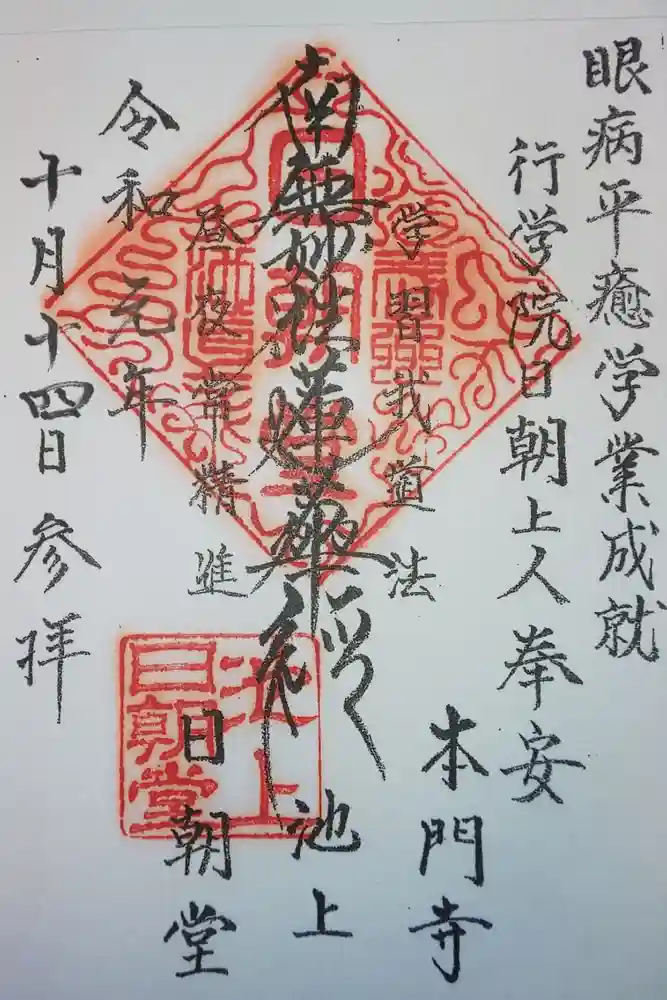 眼病平癒学業成就
行学院日朝上人奉安
本門寺
学習我道法
南無妙法蓮華経
池上
昼夜常精進
日朝堂
令和元年
十月十四日 参拝
池上
日朝堂